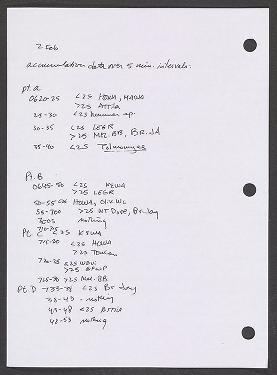 2 Feb
accumulation data over 5 min. intervals.
pt. a
0620-25 <25 HOWA, MAWA
>25 Attila
25-30 <25 hummer sp.
30-35 <25 LEGR
>25 MEL. BB, Br. Jd
35-40 <25 Tolmomyias
Pt. B
0645-50 <25 KEWA
>25 LEGR
50-55 <25 HOWA,
55-700 >25 WT Dove, Br. Jay
7005 nothing
Pt C <25 KEWA
715-20 <25 HOWA
>25 Toucan
720-25 <25
>25
725-30 >25 Mel. BB
Pt. D 733-38 <25 Br. Jay
38-43 - nothing
43-48 <25 Attila
48-53 nothing